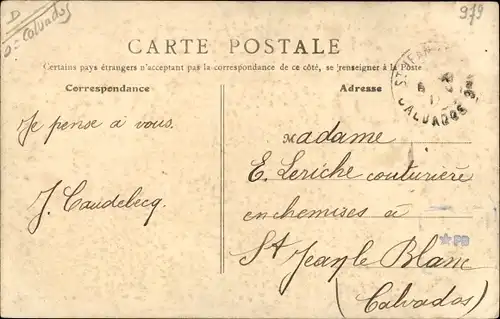 D
D = Calvados
979
CARTE POSTALE
Certains pays étrangers n'acceptant pas la correspondance de ce côté, se renseigner à la Poste
Correspondance
Adresse
CALVADOS
Je pense à vous.
J. Caudebecq.
Madame
E. Leriche couturière
en chemises à
St Jean le Blanc
PB
(Calvados)